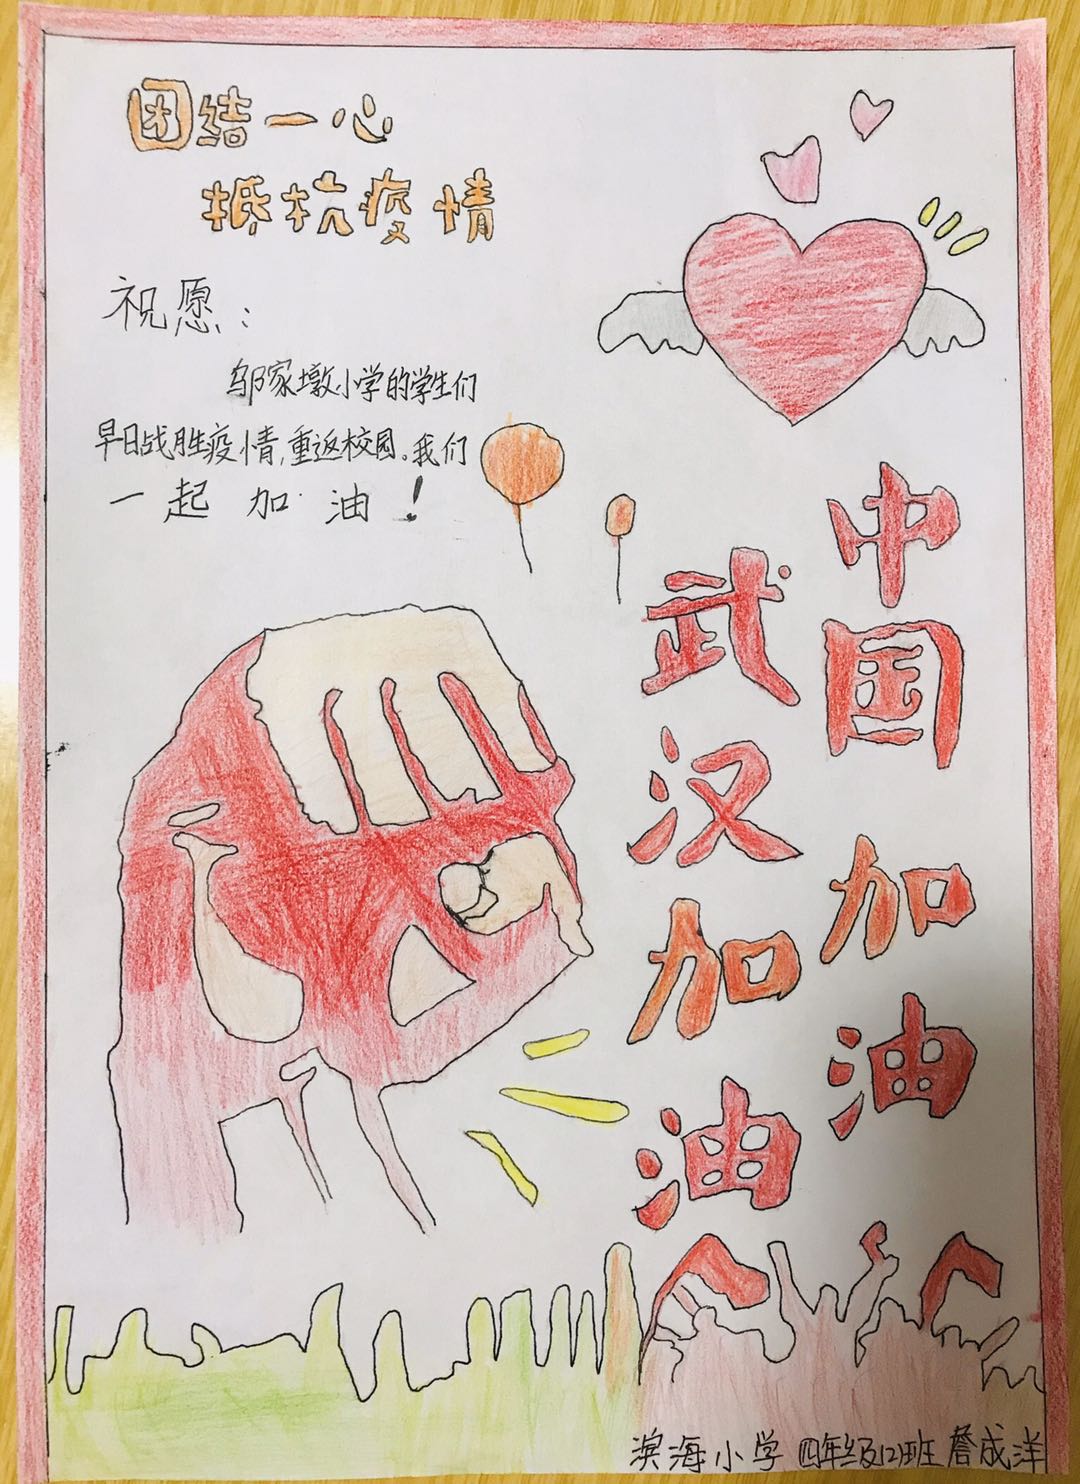 团结一心
抵抗疫情
祝愿：
邬家墩小学的学生们
早日战胜疫情，重返校园。我们
一起加油！
中国加油
武汉加油
滨海小学 四年级12班 詹成洋